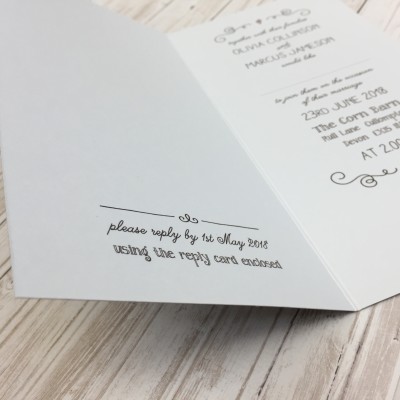 together with their families
OLIVIA COLLINSON
and
MARCUS JAMESON
would like
to join them on the occasion
of their marriage
23RD JUNE 2018
The Corn Barn
Pull Lane Cullompton
Devon
AT 2.00
please reply by 1st May 2018
using the reply card enclosed